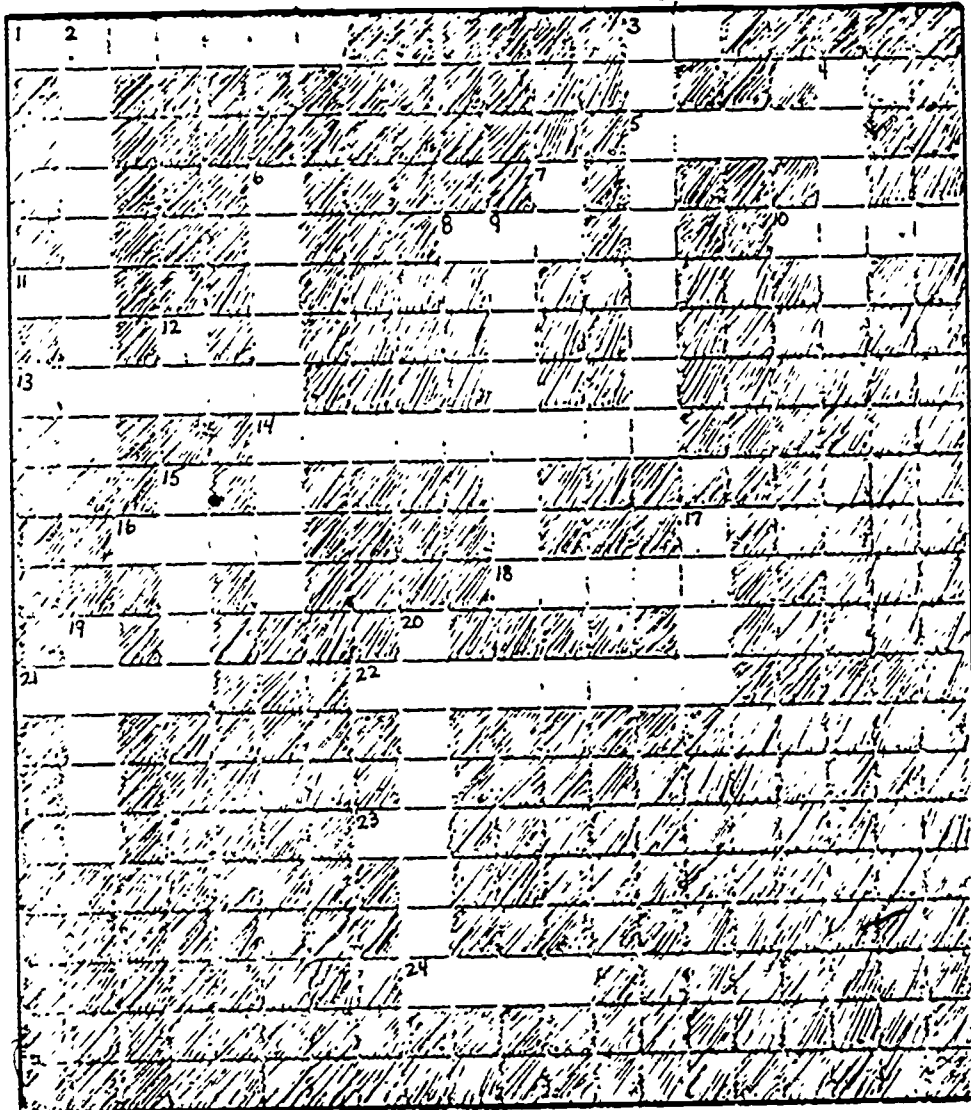 1 2 3
4
5
6 7
8 9 10
11
12
13
14
15
16 17
18
19 20
21 22
23
24